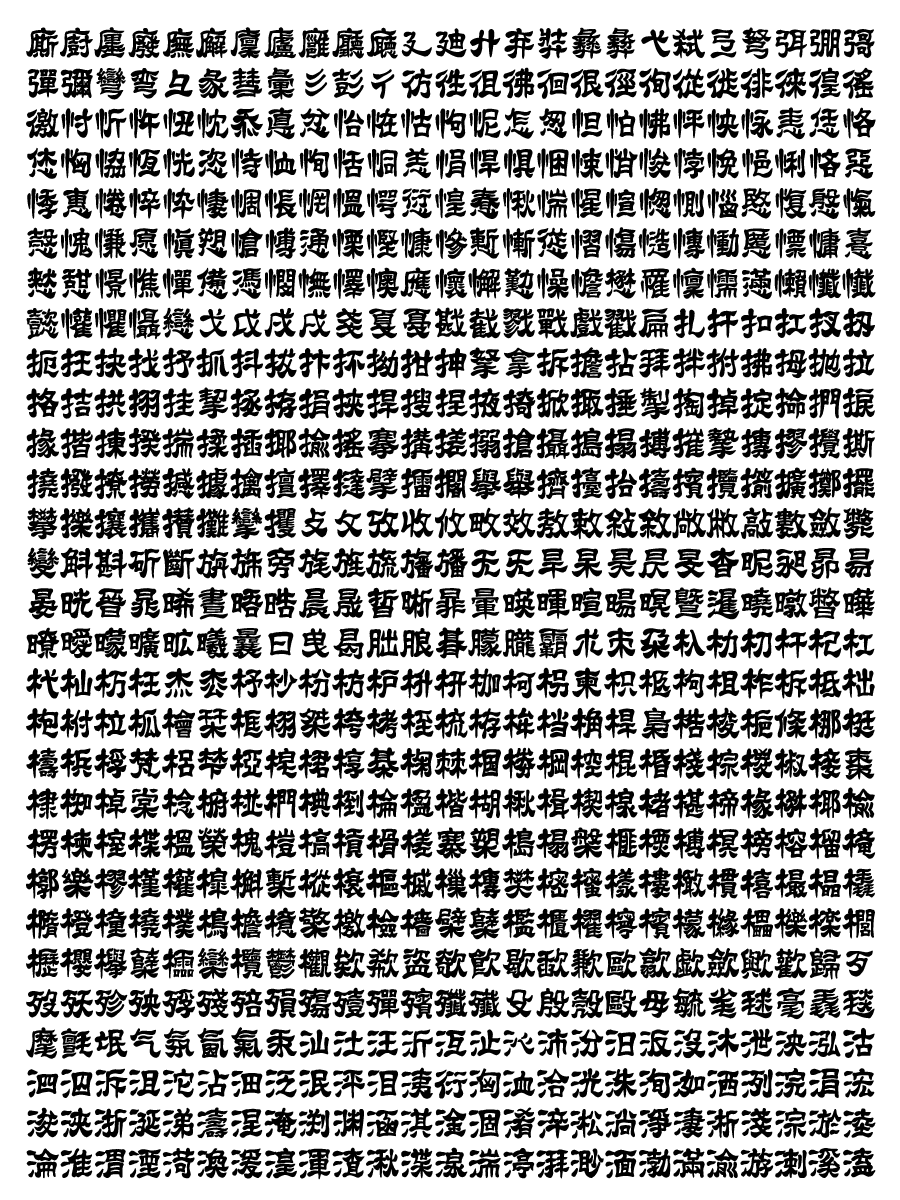 廝廚廛廢廡廨廩廬廱廳廰廴廸廾弃弉彝彜弋弑弖弩弭弸彁
彈彌彎弯彑彖彗彙彡彭彳彷徃徂彿徊很徑徇從徙徘徠徨徭
徼忖忻忤忸忱忝悳忿怡恠怙怐怩怎怱怛怕怫怦怏怺恚恁恪
恷恟恊恆恍恣恃恤恂恬恫恙悁悍惧悃悚悄悛悖悗悒悧悋惡
悸惠惓悴忰悽惆悵惘慍愕愆惶惷愀惴惺愃愡惻惱愍愎慇愾
愨愧慊愿愼愬愴愽慂慄慳慷慘慙慚慫慴慯慥慱慟慝慓慵憙
憖憇憬憔憚憊憑憫憮懌懊應懷懈懃懆憺懋罹懍懦懣懶懺懴
懿懽懼懾戀戈戉戍戌戔戛戞戡截戮戰戲戳扁扎扞扣扛扠扨
扼抂抉找抒抓抖拔抃抔拗拑抻拏拿拆擔拈拜拌拊拂拇抛拉
挌拮拱挧挂挈拯拵捐挾捍搜捏掖掎掀掫捶掣掏掉掟掵捫捩
掾揩揀揆揣揉插揶揄搖搴搆搓搦搶攝搗搨搏摧摯摶摎攪撕
撓撥撩撈撼據擒擅擇撻擘擂擱擧舉擠擡抬擣擯攬擶擴擲擺
攀擽攘攜攅攤攣攫攴攵攷收攸畋效敖敕敍敘敞敝敲數斂斃
變斛斟斫斷旃旆旁旄旌旒旛旙无旡旱杲昊昃旻杳昵昶昴昜
晏晄晉晁晞晝晤晧晨晟晢晰暃暈暎暉暄暘暝曁暹曉暾暼曄
暸曖曚曠昿曦曩曰曵曷朏朖朞朦朧霸朮朿朶杁朸朷杆杞杠
杙杣杤枉杰枩杼杪枌枋枦枡枅枷柯枴柬枳柩枸柤柞柝柢柮
枹柎柆柧檜栞框栩桀桍栲桎梳栫桙档桷桿梟梏梭梔條梛梃
檮梹桴梵梠梺椏梍桾椁棊椈棘椢椦棡椌棍棔棧棕椶椒椄棗
棣椥棹棠棯椨椪椚椣椡棆楹楷楜楸楫楔楾楮椹楴椽楙椰楡
楞楝榁楪榲榮槐榿槁槓榾槎寨槊槝榻槃榧樮榑榠榜榕榴槞
槨樂樛槿權槹槲槧樅榱樞槭樔槫樊樒櫁樣樓橄樌橲樶橸橇
橢橙橦橈樸樢檐檍檠檄檢檣檗蘗檻櫃櫂檸檳檬櫞櫑櫟檪櫚
櫪櫻欅蘖櫺欒欖鬱欟欸欷盜欹飮歇歃歉歐歙歔歛歟歡歸歹
歿殀殄殃殍殘殕殞殤殪殫殯殲殱殳殷殼毆毋毓毟毬毫毳毯
麾氈氓气氛氤氣汞汕汢汪沂沍沚沁沛汾汨汳沒沐泄泱泓沽
泗泅泝沮沱沾沺泛泯泙泪洟衍洶洫洽洸洙洵洳洒洌浣涓浤
浚浹浙涎涕濤涅淹渕渊涵淇淦涸淆淬淞淌淨淒淅淺淙淤淕
淪淮渭湮渮渙湲湟渾渣湫渫湶湍渟湃渺湎渤滿渝游溂溪溘